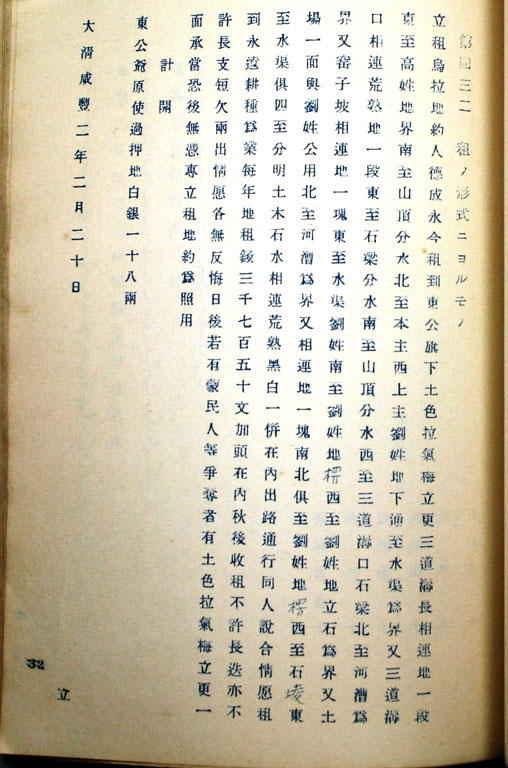 第四三二　租ノ形式ニヨルモノ
立租烏拉地約人德成永今租到東公旗下土色拉氣梅立更三道海長相連地一段
東至高姓地界南至山頂分水北至本主西上主劉姓地下浦至水渠爲界又三道海
口相連荒熟地一段東至石梁分水南至山頂分水西至三道海口石梁北至河漕爲
界又窑子坡相連地一塊東至水渠劉姓南至劉姓地楞西至劉姓地立石爲界又土
場一面與劉姓公用北至河漕爲界又相連地一塊南北俱至劉姓地楞西至石堎東
至水渠俱四至分明土木石水相連荒熟黑白一併在內出路通行同人說合情愿租
到永遠耕種爲業每年地租錢三千七百五十文加頭在內秋後收租不許長迭亦不
許長支短欠兩出情愿各無反悔日後若有蒙民人等爭奪者有土色拉氣梅立更一
面承當恐後無憑專立租地約爲照用
計開
東公爺原使過押地白銀一十八兩
大淸咸豐二年二月二十日
立
32